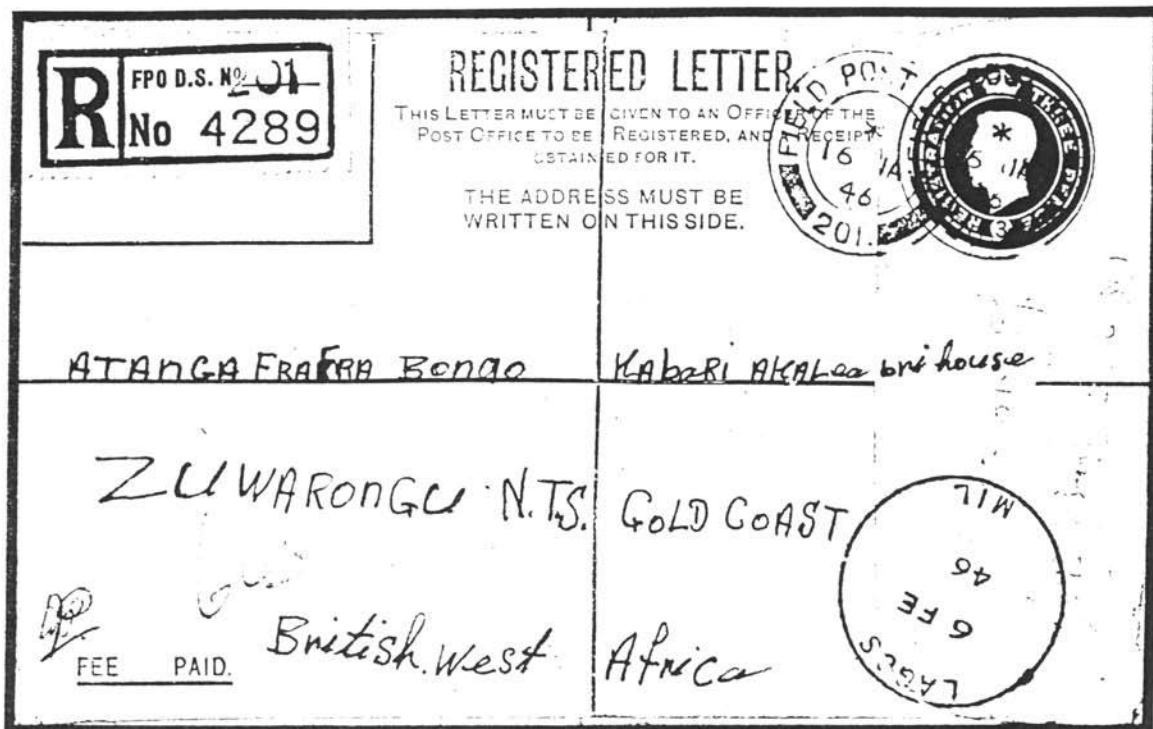 R FPO D.S. No 201
No 4289
REGISTERED LETTER.
THIS LETTER MUST BE GIVEN TO AN OFFICER OF THE
POST OFFICE TO BE REGISTERED, AND A RECEIPT
OBTAINED FOR IT.
THE ADDRESS MUST BE
WRITTEN ON THIS SIDE.
FIELD POST
16 JA
46
201.
REGISTRATION THREE PENCE
3
ATANGA FRAFRA Bongo Kabari AKALee bri house
ZUWARONGU N.T.S. GOLD COAST
British West Africa
FEE PAID.
LAGOS
6 FE
46
MIL